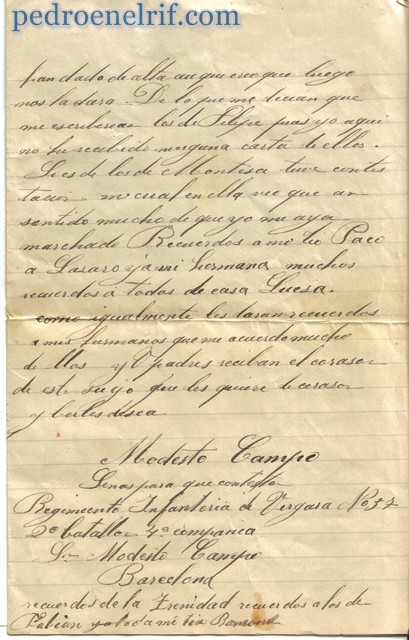 pedroenelrif.com
pan dado de alta auque creo que luego
nos la dara De lo que me decian que
me escriberian los de Felipe pues yo aqui
no he recibido ninguna carta de ellos.
Si es de los de Montesa tuve contes
tacion cual en ella vie que an
sentido mucho de que yo me aya
marchado Recuerdos a mi tio Paco
a Lasaro y a mi hermana muchos
recuerdos a todos de casa Luesa.
como igualmente les daran recuerdos
a mis hermanos que me acuerdo mucho
de llos y V padres reciban el corason
de este su yo que les quiere de corason
y berles desea
Modesto Campo
Senas para que contesten
Regimiento Infanteria de Vergara No 57
2o batallon 4a compania
Sr Modesto Campo
Barcelona
recuerdos de la Trenidad recuerdos a los de
Fabian y a toda mi tia